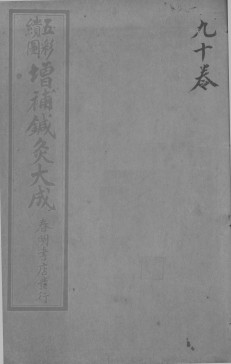 九十卷
五彩
繪圖
增補鍼灸大成
書店發行